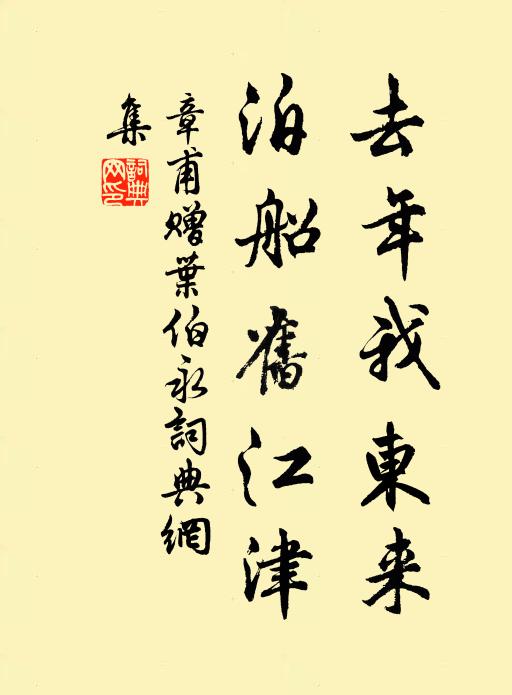 去年我東来
泊船舊江津
章甫赠葉伯永詞典網
集
詞典网印